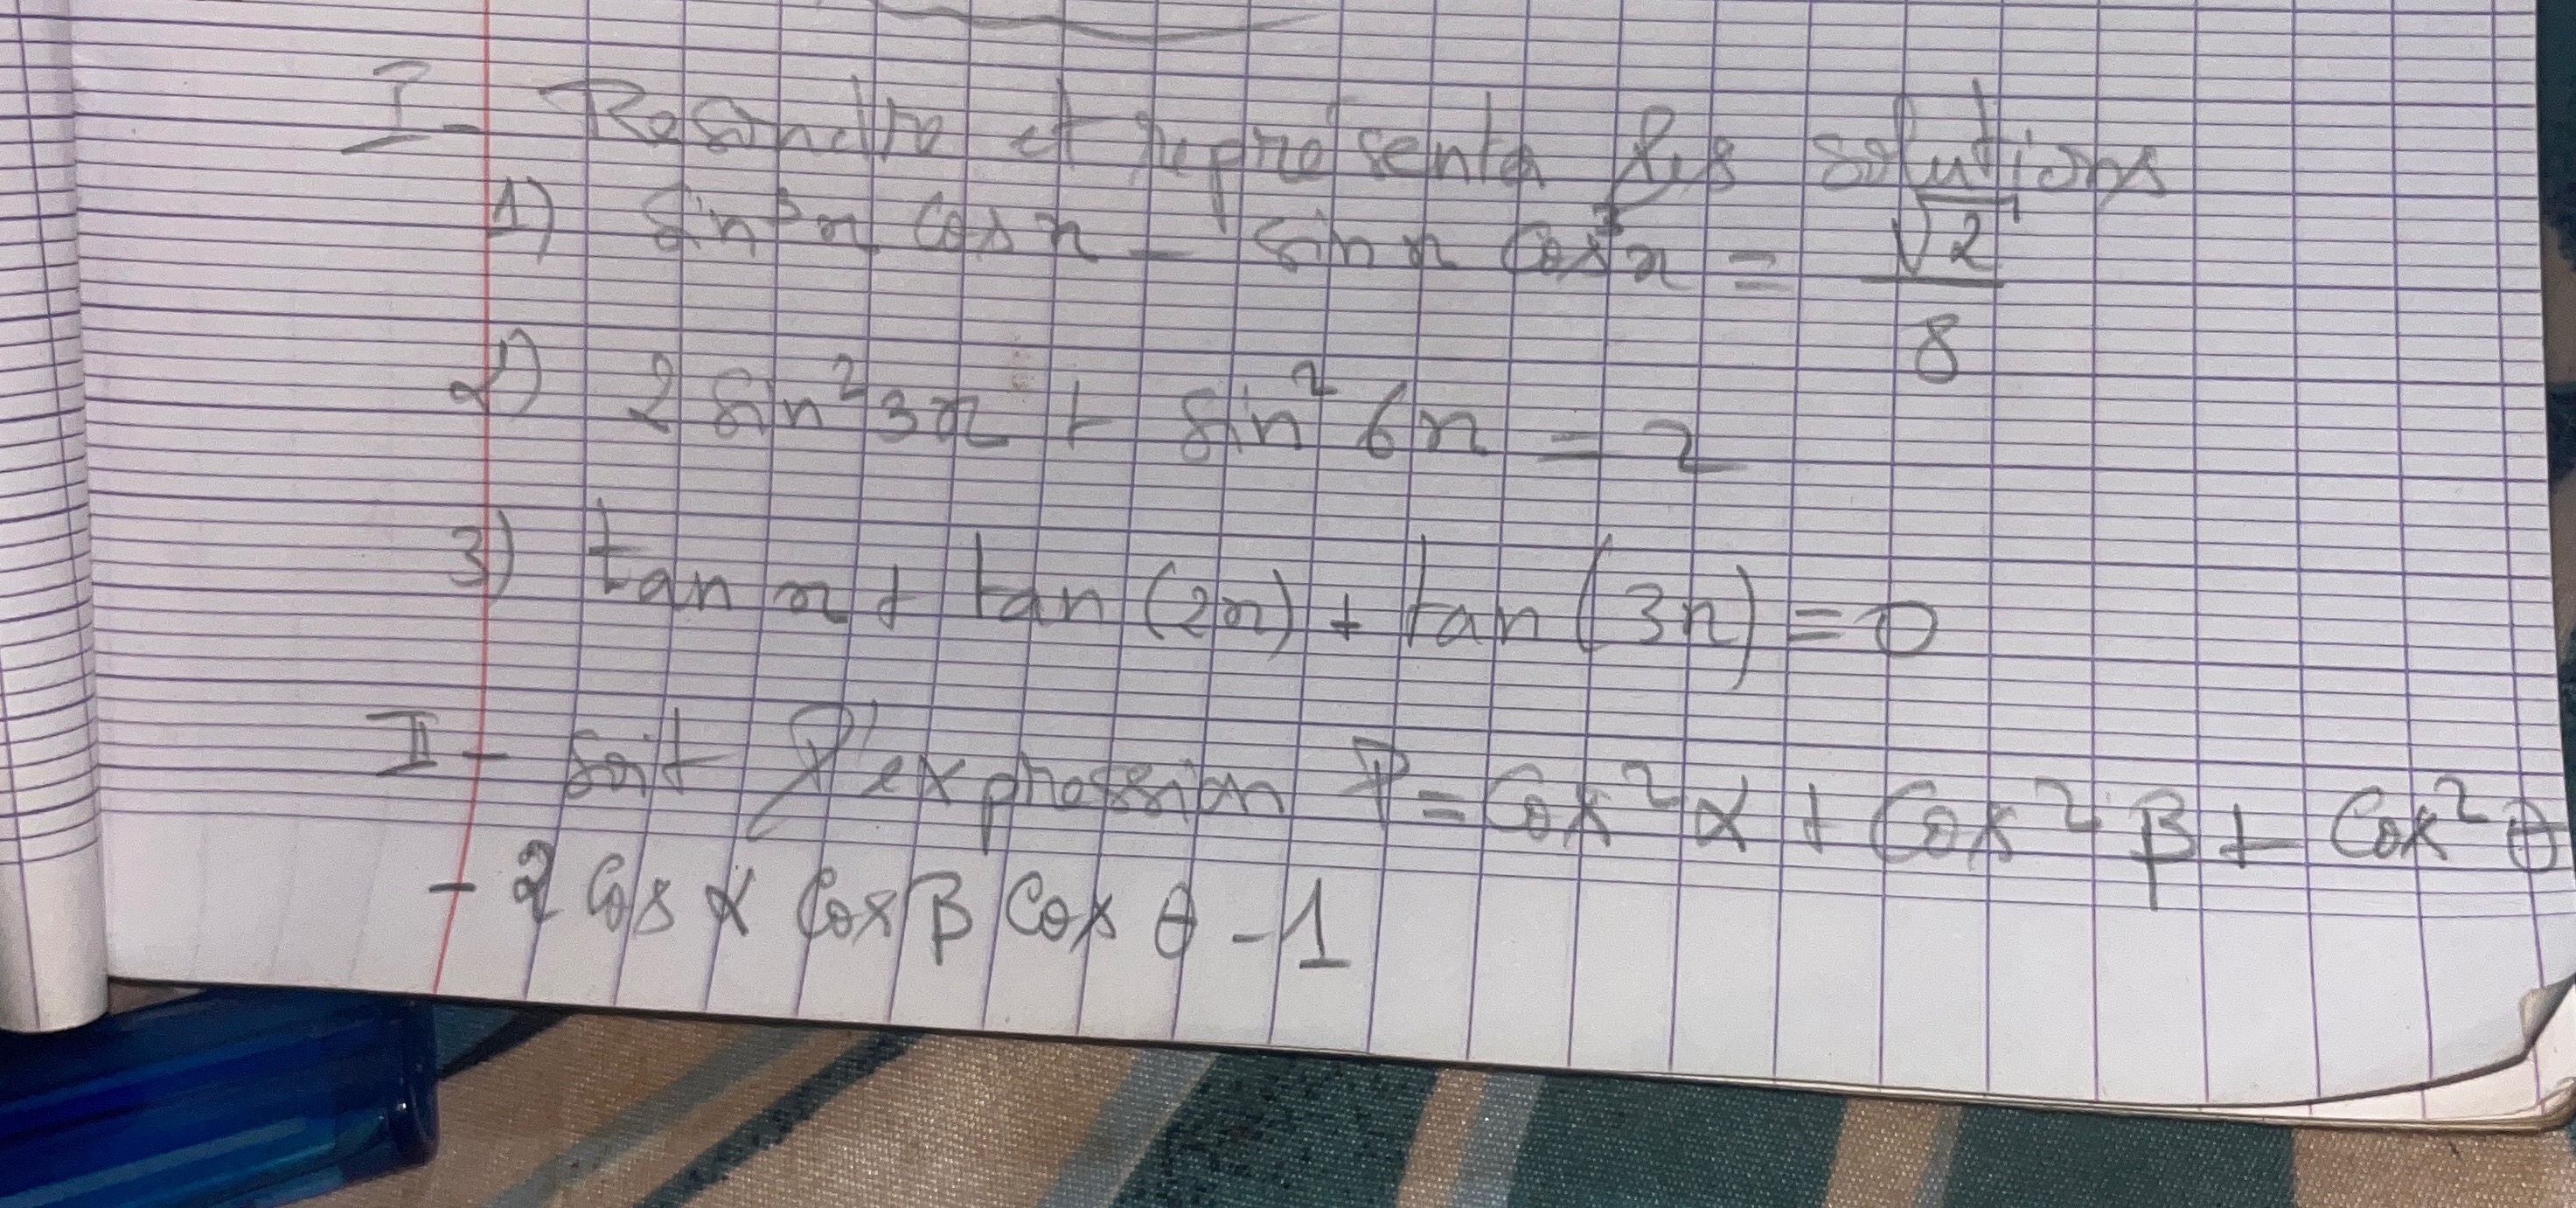 I- Résoudre et représenter les solutions
1) sin³x cos x - sin x cos³x = √2/8
2) 2 sin²3x + sin²6x = 2
3) tan x + tan(2x) + tan(3x) = 0
II- soit l'expression P = cos²α + cos²β + cos²θ
- 2 cos α cos β cos θ - 1